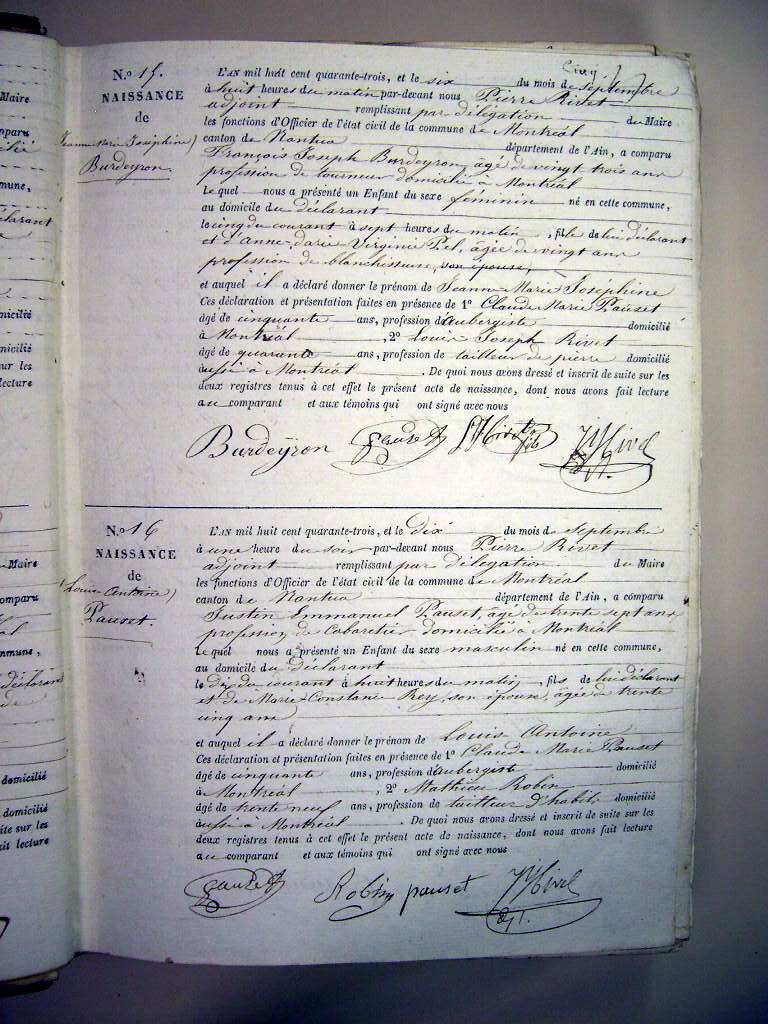 Maire
comparu
mmune,
déclarant
domicilié
micilié
ur les
lecture
Maire
omparu
mmune,
déclarant
domicilié
omicilié
ite sur les
it lecture
N.o 15.
NAISSANCE
de
Jeanne Marie Joséphine
Burdeyron
L'AN mil huit cent quarante-trois, et le six du mois de septembre
à huit heures du matin par-devant nous Pierre Rivet
adjoint remplissant par délégation du Maire
les fonctions d'Officier de l'état civil de la commune de Montréal
canton de Nantua département de l'Ain, a comparu
François Joseph Burdeyron, âgé de vingt trois ans
profession de tourneur domicilié à Montréal
Lequel nous a présenté un Enfant du sexe féminin né en cette commune,
au domicile du déclarant
le cinq du courant à sept heures du matin, fille de lui déclarant
et d'anne-Marie Virginie Pel, âgée de vingt ans
profession de blanchisseuse, son épouse,
et auquel il a déclaré donner le prénom de Jeanne Marie Josephine
Ces déclaration et présentation faites en présence de 1o Claude Marie Pauset
âgé de cinquante ans, profession d'aubergiste domicilié
à Montréal, 2o Louis Joseph Rivet
âgé de quarante ans, profession de tailleur de pierre domicilié
aussi à Montréal. De quoi nous avons dressé et inscrit de suite sur les
deux registres tenus à cet effet le présent acte de naissance, dont nous avons fait lecture
au comparant et aux témoins qui ont signé avec nous
Burdeÿron Pauset Rivet
N.o 16
NAISSANCE
de
(Louis Antoine)
Pauset.
L'AN mil huit cent quarante-trois, et le dix du mois de septembre
à une heure du soir par-devant nous Pierre Rivet
adjoint remplissant par délégation du Maire
les fonctions d'Officier de l'état civil de la commune de Montréal
canton de Nantua département de l'Ain, a comparu
Justin Emmanuel Pauset, âgé de trente sept ans
profession de Cabaretier domicilié à Montréal
Lequel nous a présenté un Enfant du sexe masculin né en cette commune,
au domicile du déclarant
le dix du courant à huit heures du matin, fils de lui déclarant
et de Marie Constance Rey, son épouse, âgée de trente
cinq ans
et auquel il a déclaré donner le prénom de Louis Antoine
Ces déclaration et présentation faites en présence de 1o Claude Marie Pauset
âgé de cinquante ans, profession d'aubergiste domicilié
à Montréal, 2o Mathieu Robin
âgé de trente neuf ans, profession de tailleur d'habits domicilié
aussi à Montréal. De quoi nous avons dressé et inscrit de suite sur les
deux registres tenus à cet effet le présent acte de naissance, dont nous avons fait lecture
au comparant et aux témoins qui ont signé avec nous
Pauset Robin pauset Rivet